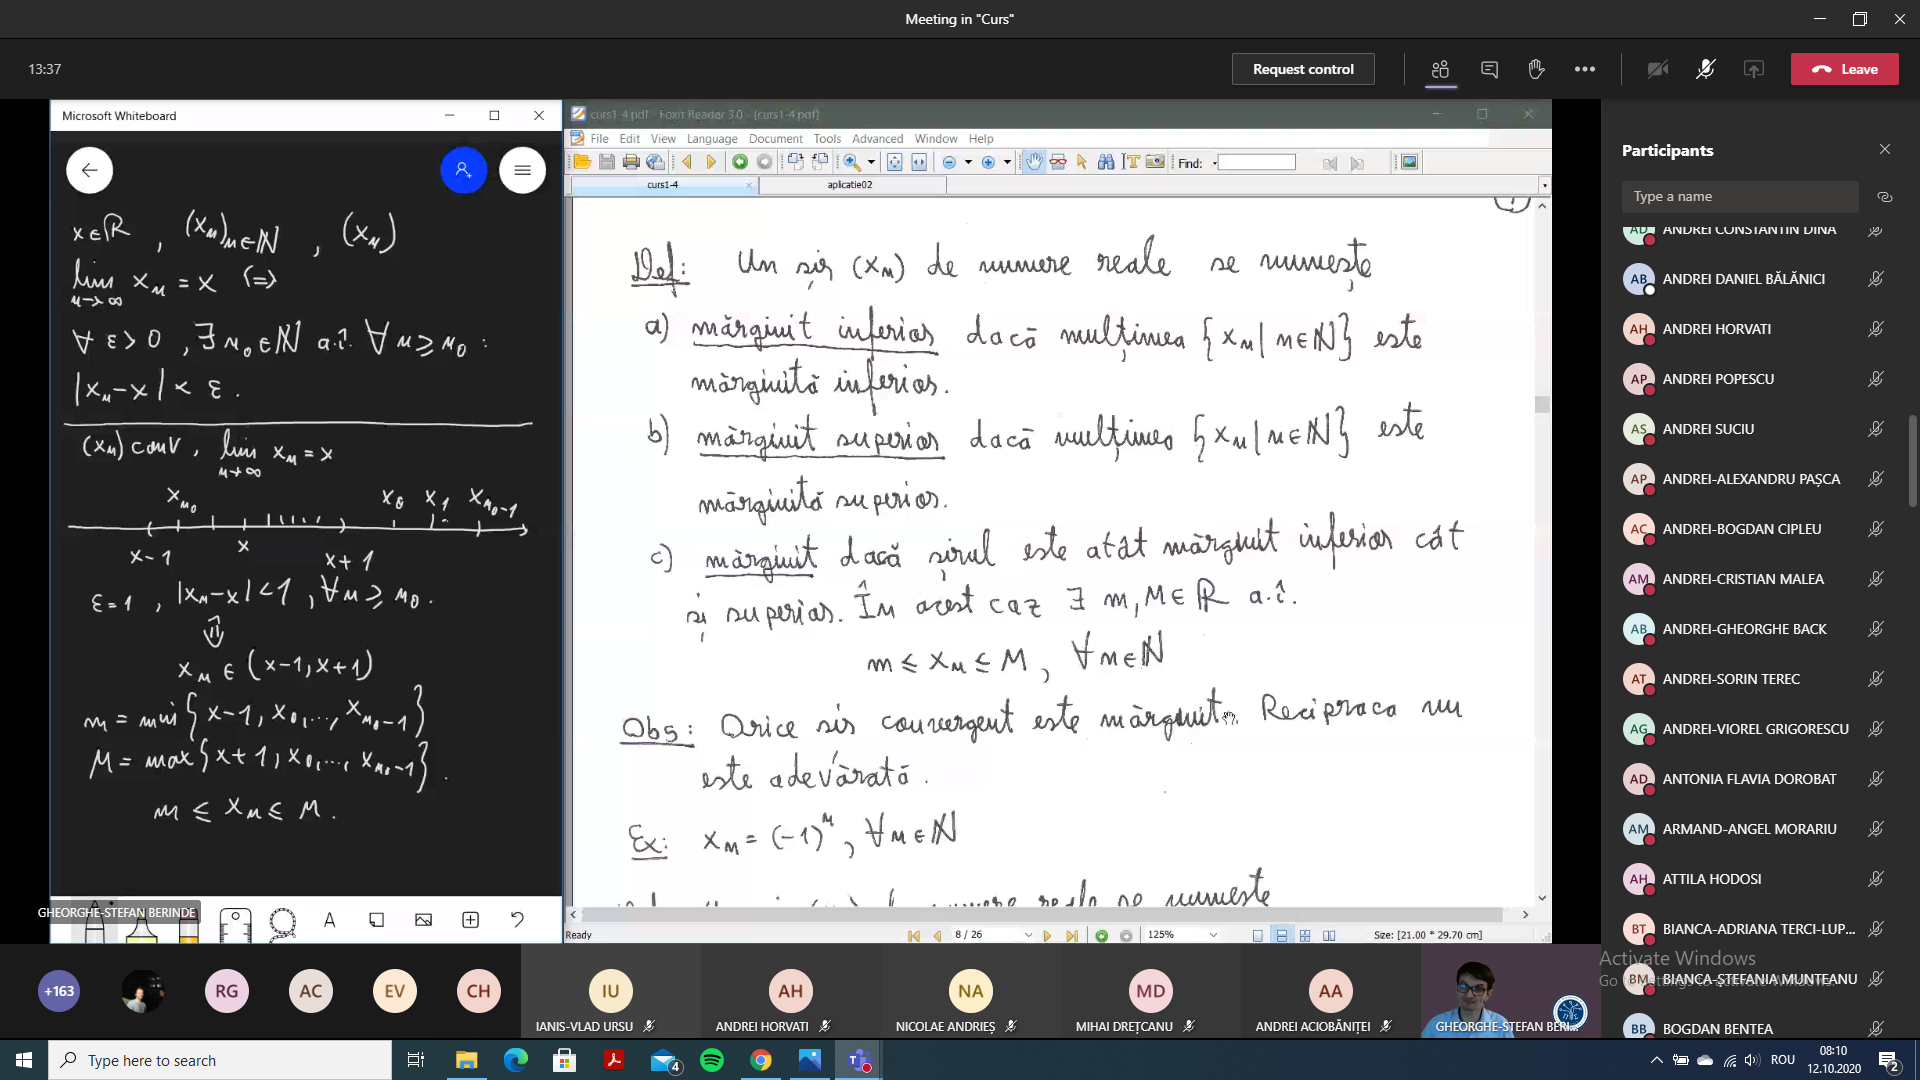 Meeting in "Curs"
13:37
Request control
Leave
Microsoft Whiteboard
x∈ℝ , (xₙ)ₙ∈ℕ , (xₙ)
lim xₙ = x (=)
n→∞
∀ ε>0 , ∃ n₀∈ℕ a.î. ∀ n⩾n₀ :
|xₙ-x| < ε .
(xₙ) conv , lim xₙ = x
n→∞
xₙ₀ x₀ x₁ xₙ₀₋₁
x-1 x x+1
ε=1 , |xₙ-x|<1 , ∀n⩾n₀ .
⇕
xₙ ∈ (x-1, x+1)
m = min{x-1, x₀,..., xₙ₀₋₁}
M = max{x+1, x₀,..., xₙ₀₋₁} .
m ≤ xₙ ≤ M .
GHEORGHE-STEFAN BERINDE
curs1-4.pdf - Foxit Reader 3.0 - [curs1-4.pdf]
File Edit View Language Document Tools Advanced Window Help
Find:
curs1-4 aplicatie02
Def: Un șir (xₙ) de numere reale se numește
a) mărginit inferior dacă mulțimea {xₙ | n∈ℕ} este
mărginită inferior.
b) mărginit superior dacă mulțimea {xₙ | n∈ℕ} este
mărginită superior.
c) mărginit dacă șirul este atât mărginit inferior cât
și superior. În acest caz ∃ m, M∈ℝ a.î.
m ≤ xₙ ≤ M , ∀n∈ℕ
Obs: Orice șir convergent este mărginit. Reciproca nu
este adevărată .
Ex: xₙ = (-1)ⁿ , ∀n∈ℕ
numere reale se numește
Ready
8 / 26
125%
Size: [21.00 * 29.70 cm]
Participants
Type a name
ANDREI CONSTANTIN DINA
AB ANDREI DANIEL BĂLĂNICI
AH ANDREI HORVATI
AP ANDREI POPESCU
AS ANDREI SUCIU
AP ANDREI-ALEXANDRU PAȘCA
AC ANDREI-BOGDAN CIPLEU
AM ANDREI-CRISTIAN MALEA
AB ANDREI-GHEORGHE BACK
AT ANDREI-SORIN TEREC
AG ANDREI-VIOREL GRIGORESCU
AD ANTONIA FLAVIA DOROBAT
AM ARMAND-ANGEL MORARIU
AH ATTILA HODOSI
BT BIANCA-ADRIANA TERCI-LUP...
Activate Windows
BM BIANCA-STEFANIA MUNTEANU
Go to Settings to activate Windows.
BB BOGDAN BENTEA
+163 RG AC EV CH IU AH NA MD AA
IANIS-VLAD URSU ANDREI HORVATI NICOLAE ANDRIEȘ MIHAI DREȚCANU ANDREI ACIOBĂNIȚEI GHEORGHE-STEFAN BERI...
Type here to search
4
ROU
08:10
12.10.2020
2